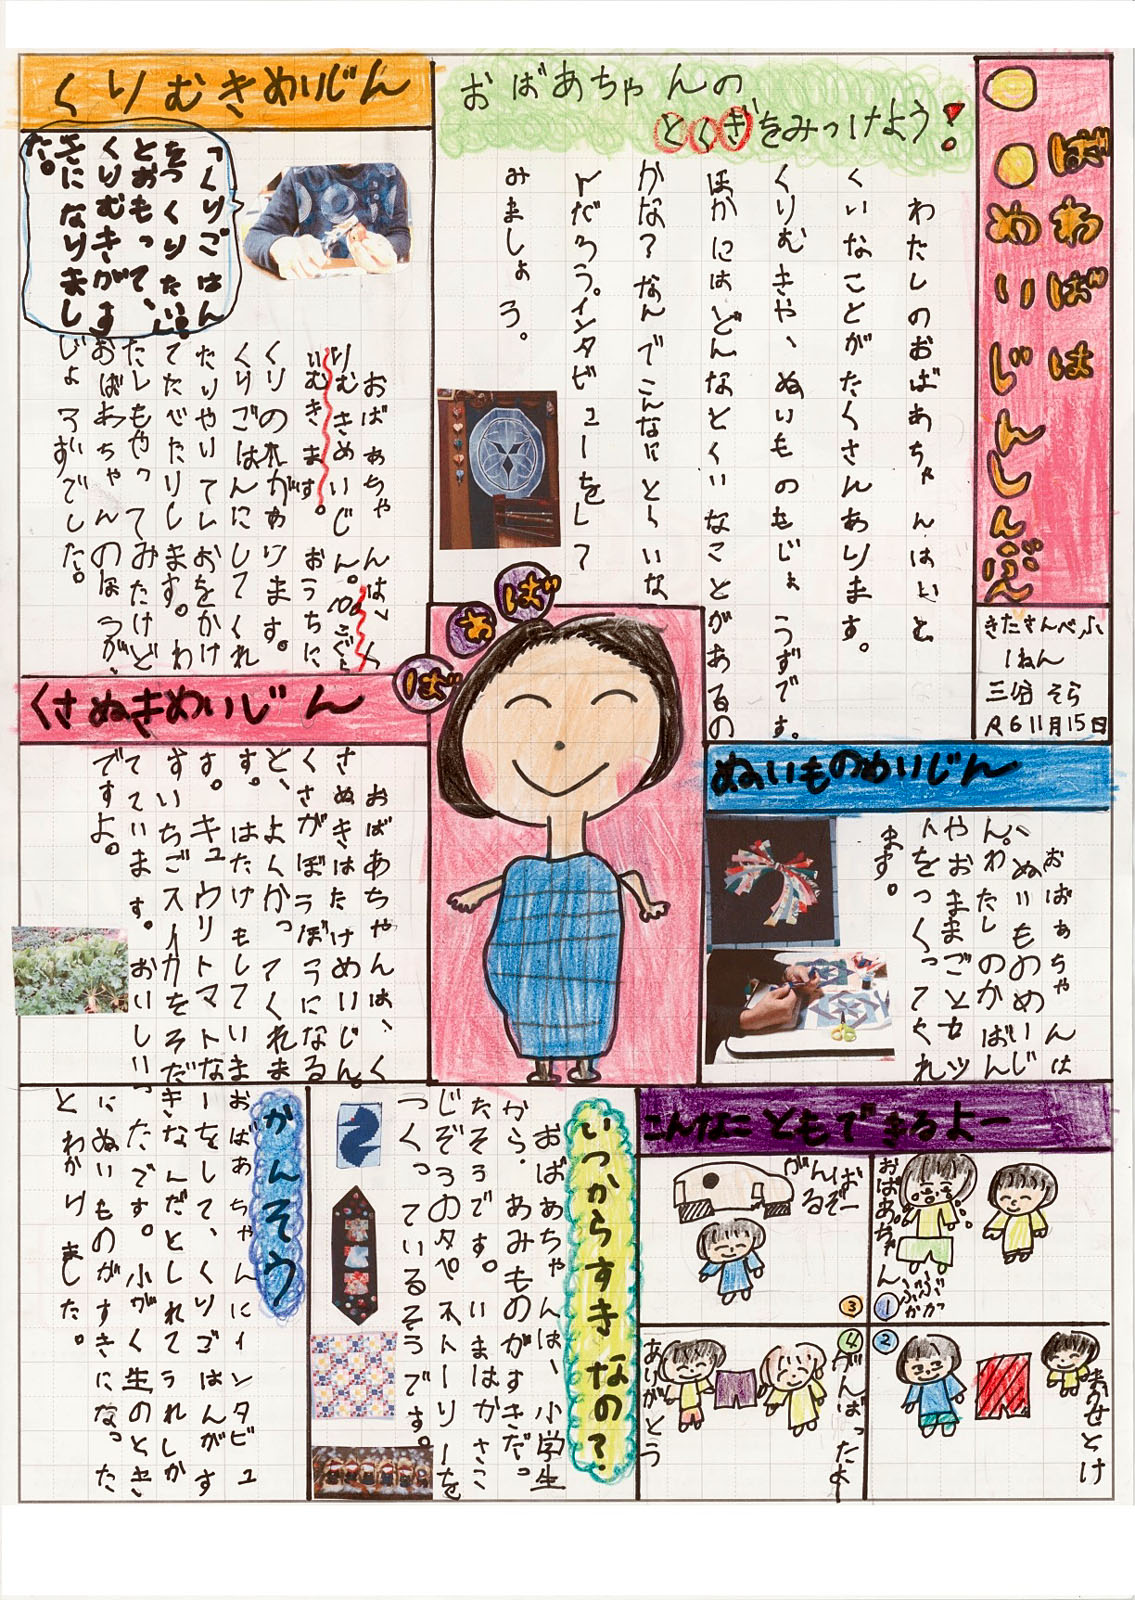 ばあばは
○○めいじんしんぶん
きたさんべふ
1ねん
三谷 そら
R6 11月15日
おばあちゃんの
とくぎをみつけよう!
わたしのおばあちゃんは、と
くいなことがたくさんあります。
くりむきや、ぬいものもじょうずです。
ほかにはどんなとくいなことがあるの
かな?なんでこんなにとくいな
んだろう。インタビューをして
みましょう。
くりむきめいじん
「くりごはん
をつくりたい。」
とおもって、
くりむきがす
きになりまし
た。
おばあちゃんは、く
りむきめいじん。10こぐら
いむきます。おうちに
くりの木があります。
くりごはんにしてくれ
たりやいてしおをかけ
てたべたりします。わ
たしもやってみたけど
おばあちゃんのほうが、
じょうずでした。
ばあば
くさぬきめいじん
おばあちゃんは、く
さぬきはたけめいじん。
くさがぼうぼうになる
と、よくかってくれま
す。はたけもしていま
す。キュウリトマトな
すいちごスイカをそだ
てています。おいしい
ですよ。
ぬいものめいじん
おばあちゃんは
、ぬいものめいじ
ん。わたしのかばん
やおままごとセッ
トをつくってくれ
ます。
こんなこともできるよー
おばあちゃん
ぶかぶか
①
②
まかせとけ
③
がんばるぞー
④
がんばったよ
ありがとう
いつからすきなの?
おばあちゃんは、小学生
から、あみものがすきだっ
たそうです。いまはかさこ
じぞうのタペストリーを
つくっているそうです。
かんそう
おばあちゃんにインタビュ
ーをして、くりごはんがす
きなんだとしれてうれしか
ったです。小がく生のとき
にぬいものがすきになった
とわかりました。